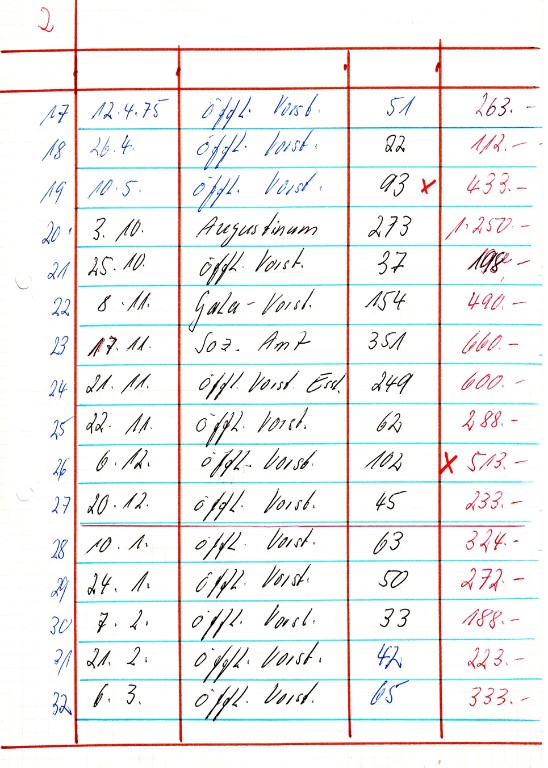 2
17 12.4.75 Öffl. Vorst. 51 263.-
18 26.4. Öffl. Vorst. 22 112.-
19 10.5. Öffl. Vorst. 93 x 433.-
20. 3.10. Augustinum 273 1.250.-
21 25.10. Öffl. Vorst. 37 198.-
22 8.11. Gala-Vorst. 154 490.-
23 17.11. Soz. Amt 351 660.-
24 21.11. Öffl. Vorst. 249 600.-
25 22.11. Öffl. Vorst. 62 288.-
26 6.12. Öffl. Vorst. 102 x 513.-
27 20.12. Öffl. Vorst. 45 233.-
28 10.1. Öffl. Vorst. 63 324.-
29 24.1. Öffl. Vorst. 50 272.-
30 7.2. Öffl. Vorst. 33 188.-
31 21.2. Öffl. Vorst. 42 223.-
32 6.3. Öffl. Vorst. 65 333.-